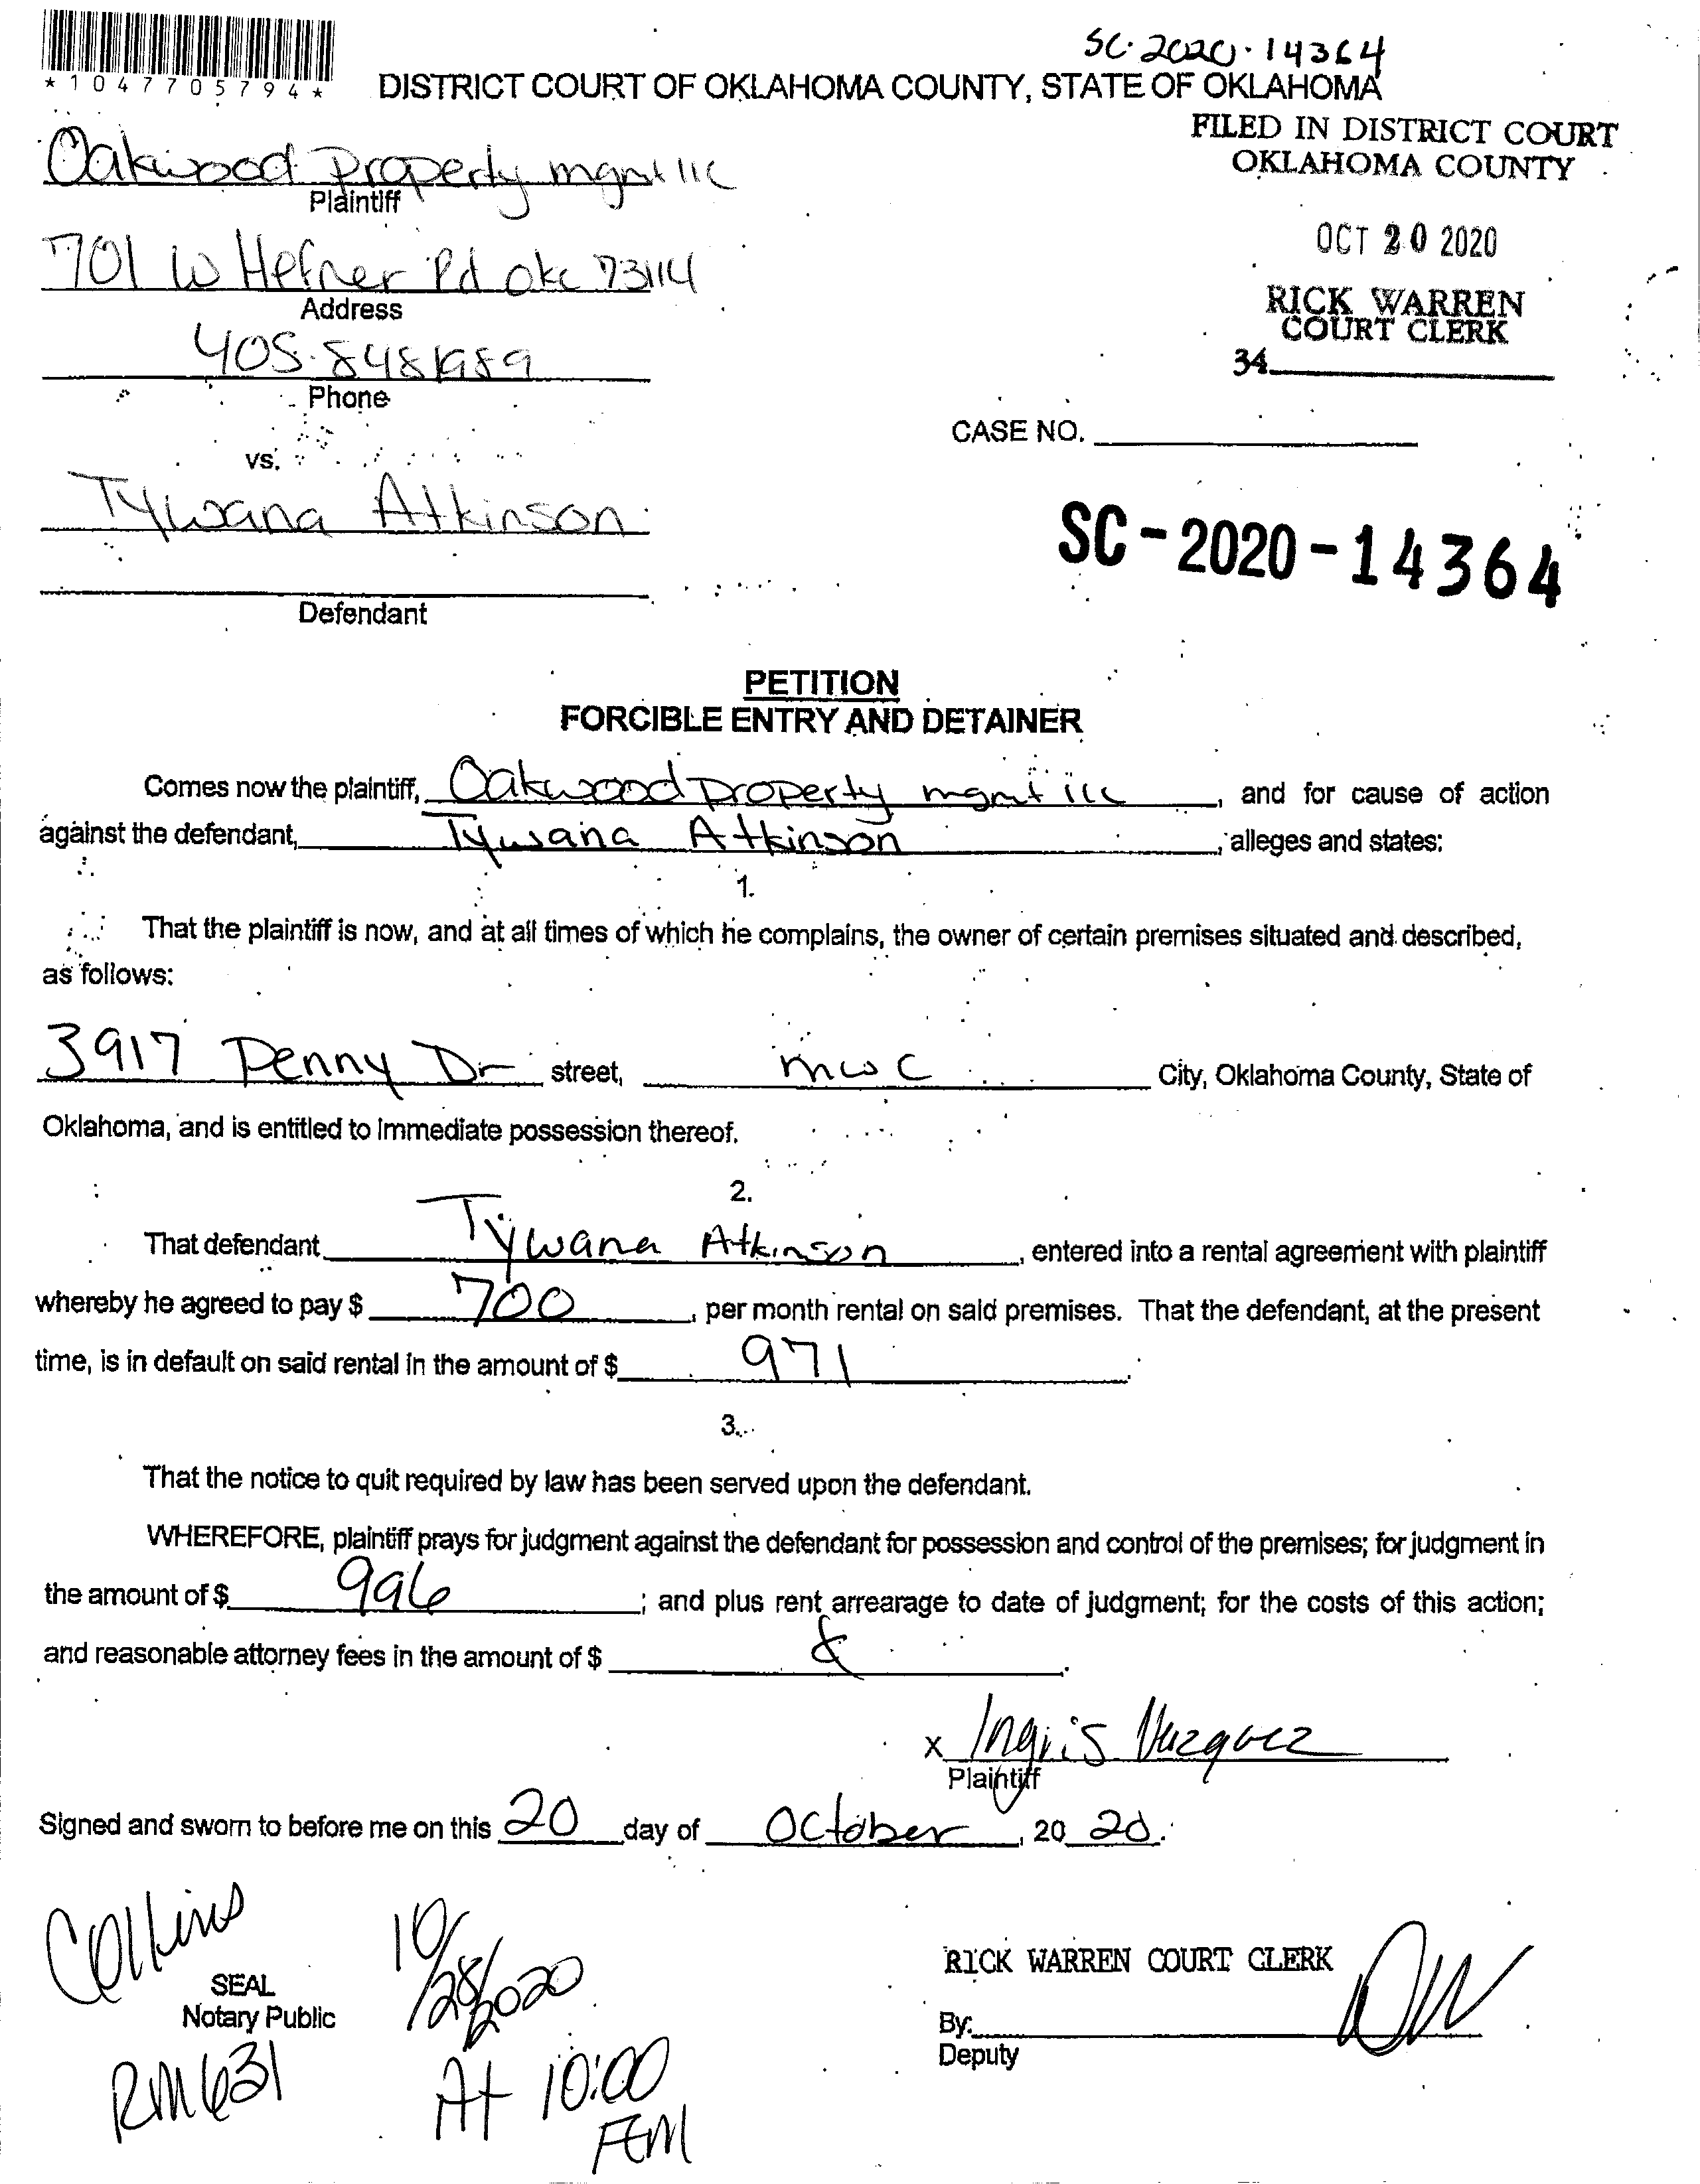 SC-2020-14364
*1047705794*
DISTRICT COURT OF OKLAHOMA COUNTY, STATE OF OKLAHOMA
FILED IN DISTRICT COURT
OKLAHOMA COUNTY
Oakwood property mgmt llc
Plaintiff
OCT 20 2020
701 W Hefner Rd okc 73114
Address
RICK WARREN
COURT CLERK
34
405-8481989
Phone
CASE NO.
vs.
Tywana Atkinson
SC-2020-14364
Defendant
PETITION
FORCIBLE ENTRY AND DETAINER
Comes now the plaintiff, Oakwood property mgmt llc, and for cause of action
against the defendant, Tywana Atkinson, alleges and states:
1.
That the plaintiff is now, and at all times of which he complains, the owner of certain premises situated and described,
as follows:
3917 Penny Dr street, mwc City, Oklahoma County, State of
Oklahoma, and is entitled to immediate possession thereof.
2.
That defendant Tywana Atkinson, entered into a rental agreement with plaintiff
whereby he agreed to pay $ 700, per month rental on said premises. That the defendant, at the present
time, is in default on said rental in the amount of $ 971.
3.
That the notice to quit required by law has been served upon the defendant.
WHEREFORE, plaintiff prays for judgment against the defendant for possession and control of the premises; for judgment in
the amount of $ 996; and plus rent arrearage to date of judgment; for the costs of this action;
and reasonable attorney fees in the amount of $
x Ingris Vazquez
Plaintiff
Signed and sworn to before me on this 20 day of October, 20 20.
Collins
10/28/2020
SEAL
Notary Public
RICK WARREN COURT CLERK
By:
Deputy
RM 631
At 10:00
AM